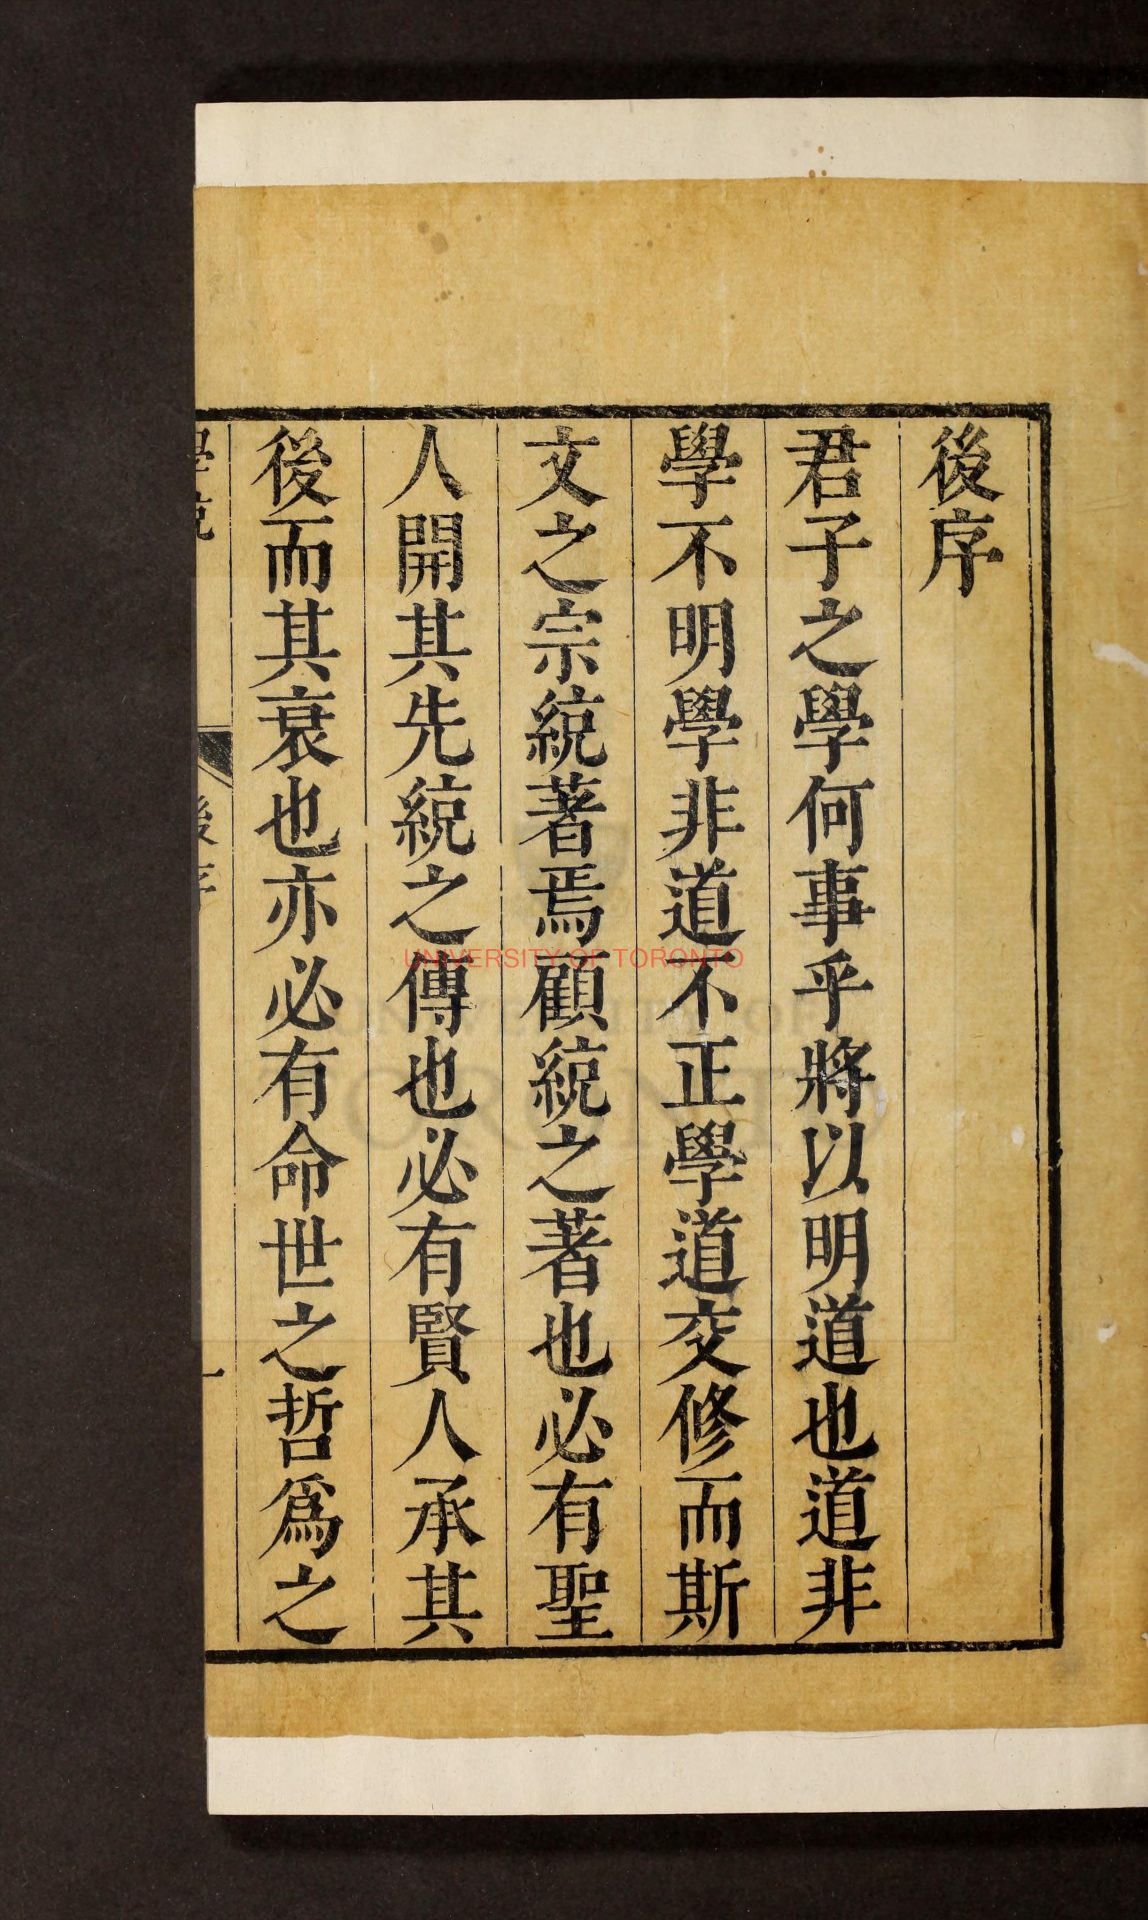 後序
君子之學何事乎將以明道也道非
學不明學非道不正學道交修而斯
文之宗統著焉顧統之著也必有聖
人開其先統之傳也必有賢人承其
後而其衰也亦必有命世之哲爲之
後序
一
UNIVERSITY OF TORONTO
UNIVERSITY OF
TORONTO